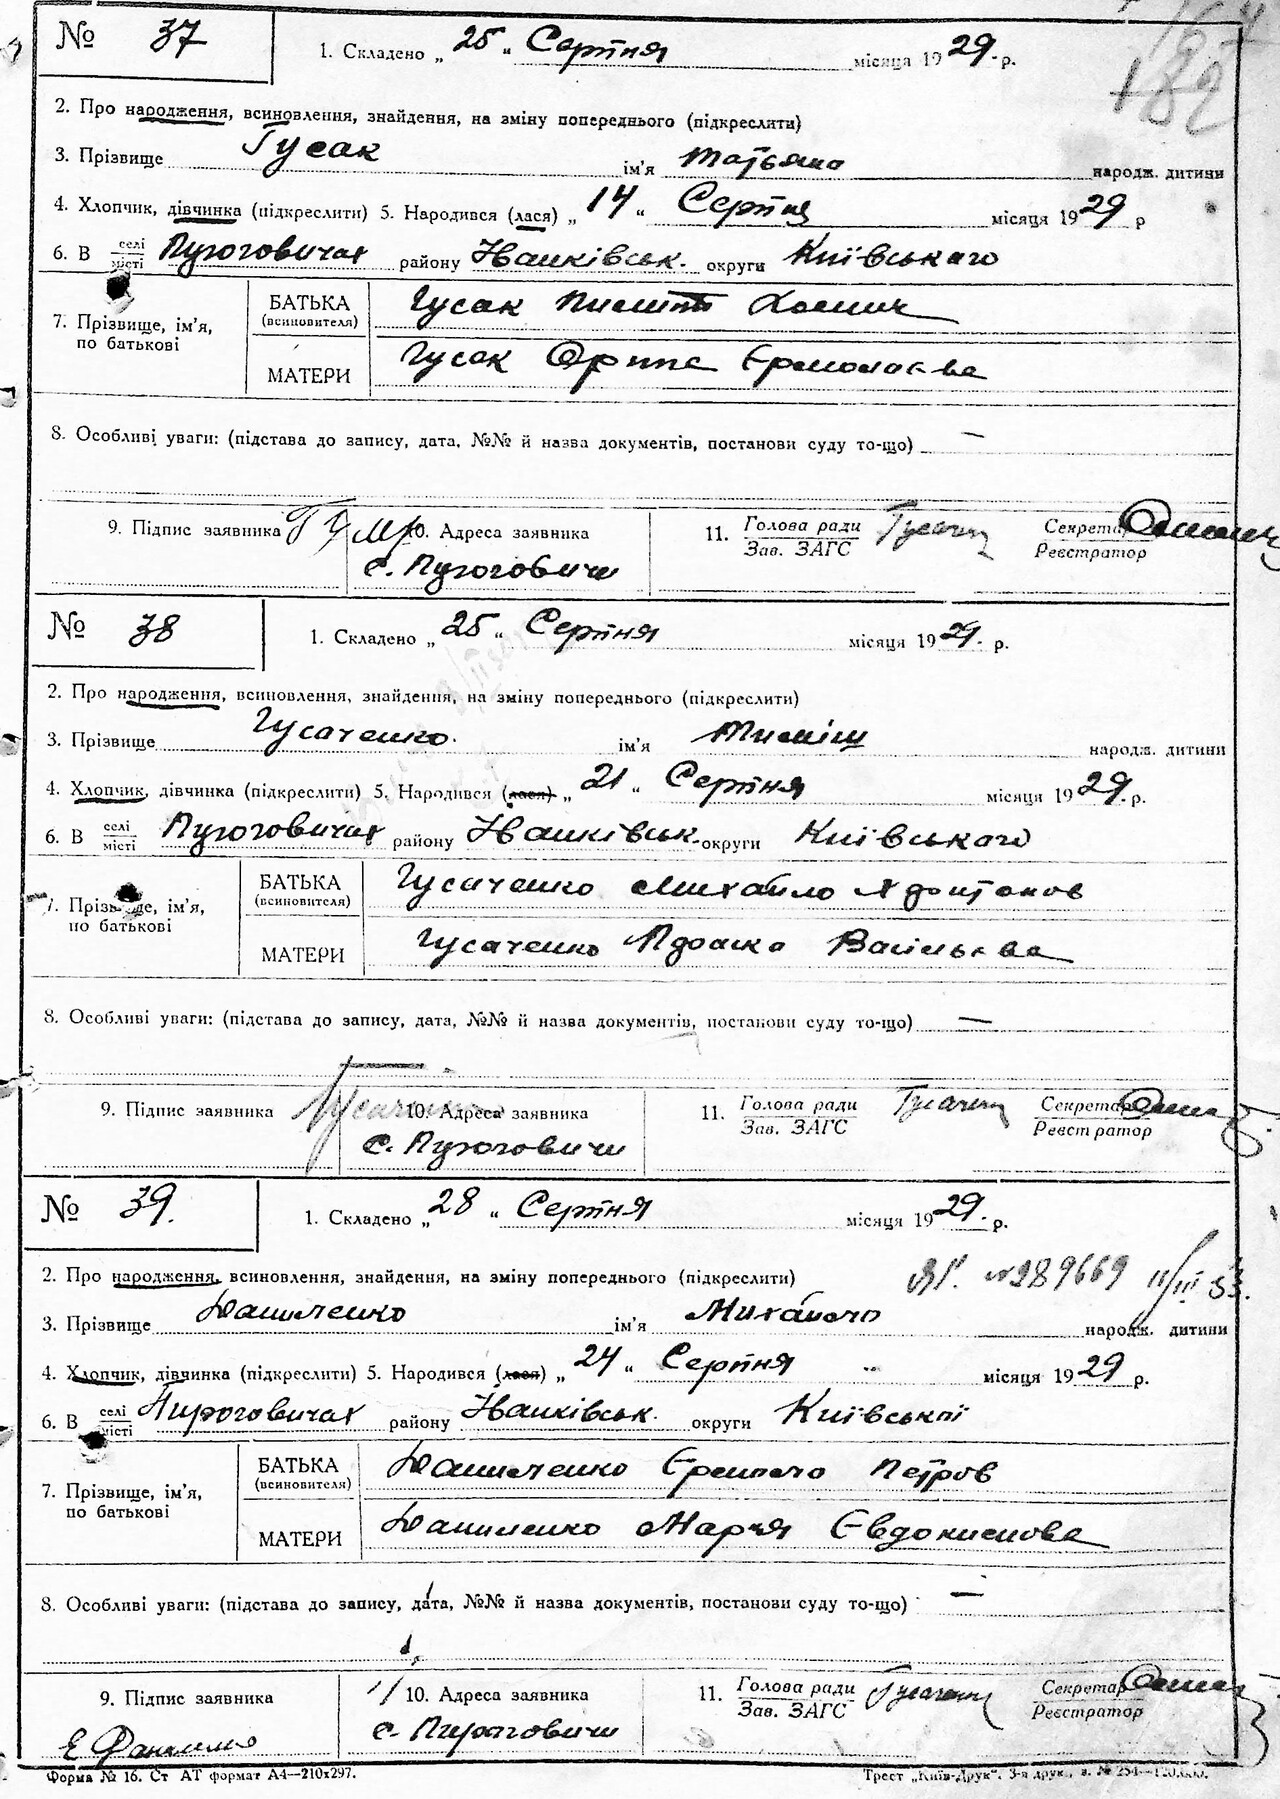 164
182
№ 37 1. Складено „25“ Серпня місяця 1929 р.
2. Про народження, всиновлення, знайдення, на зміну попереднього (підкреслити)
3. Прізвище Гусак ім'я Татьяна народж. дитини
4. Хлопчик, дівчинка (підкреслити) 5. Народився (лася) „14“ Серпня місяця 1929 р
6. В селі Пугоговичах району Іванківськ. округи Київського
місті
7. Прізвище, ім'я, по батькові БАТЬКА (всиновителя) Гусак Хомич
МАТЕРИ Гусак Орина Ермолаєва
8. Особливі уваги: (підстава до запису, дата, №№ й назва документів, постанови суду то-що) —
9. Підпис заявника 10. Адреса заявника 11. Голова ради Секретар
Зав. ЗАГС Реєстратор
с. Пугоговичи
№ 38 1. Складено „25“ Серпня місяця 1929. р.
2. Про народження, всиновлення, знайдення, на зміну попереднього (підкреслити)
3. Прізвище Гусаченко ім'я Тиміш народж. дитини
4. Хлопчик, дівчинка (підкреслити) 5. Народився (лася) „21“ Серпня місяця 1929. р.
6. В селі Пугоговичах району Іванківськ. округи Київського
місті
7. Прізвище, ім'я, по батькові БАТЬКА (всиновителя) Гусаченко Михайло
МАТЕРИ Гусаченко Васильєва
8. Особливі уваги: (підстава до запису, дата, №№ й назва документів, постанови суду то-що) —
9. Підпис заявника 10. Адреса заявника 11. Голова ради Секретар
Зав. ЗАГС Реєстратор
с. Пугоговичи
№ 39. 1. Складено „28“ Серпня місяця 1929. р.
2. Про народження, всиновлення, знайдення, на зміну попереднього (підкреслити) № 289669
3. Прізвище Даниленко ім'я Михайло народж. дитини
4. Хлопчик, дівчинка (підкреслити) 5. Народився (лася) „24“ Серпня місяця 1929 р.
6. В селі Пироговичах району Іванківськ. округи Київської
місті
7. Прізвище, ім'я, по батькові БАТЬКА (всиновителя) Даниленко Петров
МАТЕРИ Даниленко Марья Євдокимова
8. Особливі уваги: (підстава до запису, дата, №№ й назва документів, постанови суду то-що) —
9. Підпис заявника 10. Адреса заявника 11. Голова ради Секретар
Зав. ЗАГС Реєстратор
с. Пироговичи
Форма № 16. Ст АТ формат А4—210х297. Трест „Київ-Друк“. 3-я друк., з. № 254—120.000.